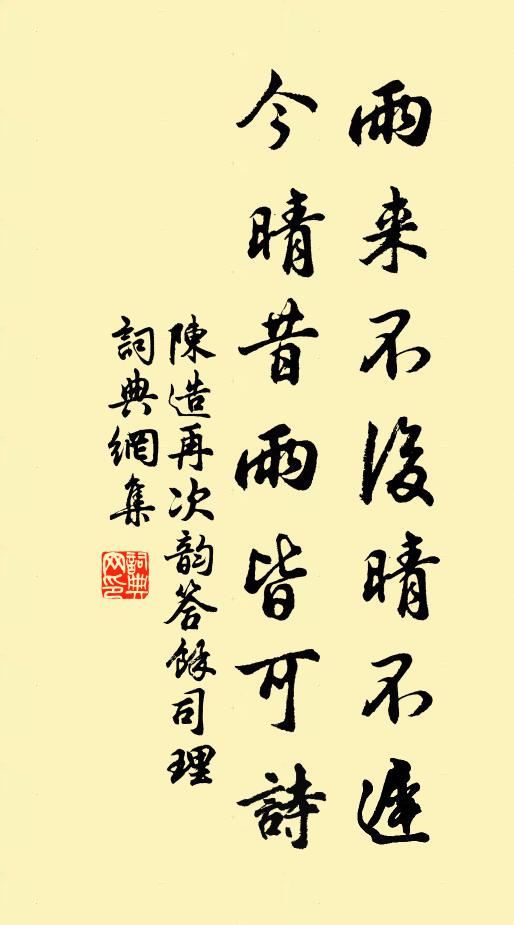 雨来不後晴不遲
今晴昔雨皆可詩
陳造再次韵答餘司理
詞典網集
詞典网印